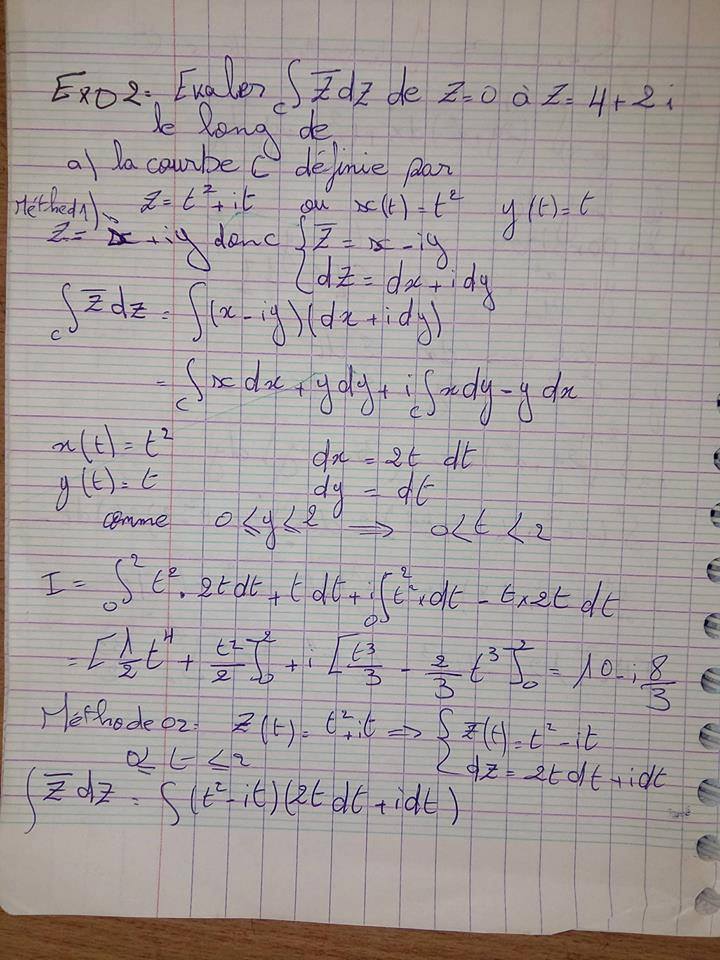 Exo2: Evaler ∫_C z̄ dz de z=0 à z=4+2i
le long de
a) la courbe C définie par
Méthod1) z = t² + it ou x(t) = t² y(t) = t
z = x + iy donc { z̄ = x - iy
{ dz = dx + i dy
∫_C z̄ dz = ∫(x - iy)(dx + i dy)
= ∫_C x dx + y dy + i ∫_C x dy - y dx
x(t) = t² dx = 2t dt
y(t) = t dy = dt
comme 0 ≤ y ≤ 2 ⟹ 0 < t < 2
I = ∫₀² t² . 2t dt + t dt + i ∫₀² t² . dt - t × 2t dt
= [1/2 t⁴ + t²/2]₀² + i [t³/3 - 2/3 t³]₀² = 10 - i 8/3
Méthode 02: z(t) = t² + it ⟹ { z̄(t) = t² - it
0 ≤ t ≤ 2 { dz = 2t dt + i dt
∫ z̄ dz = ∫ (t² - it)(2t dt + i dt)